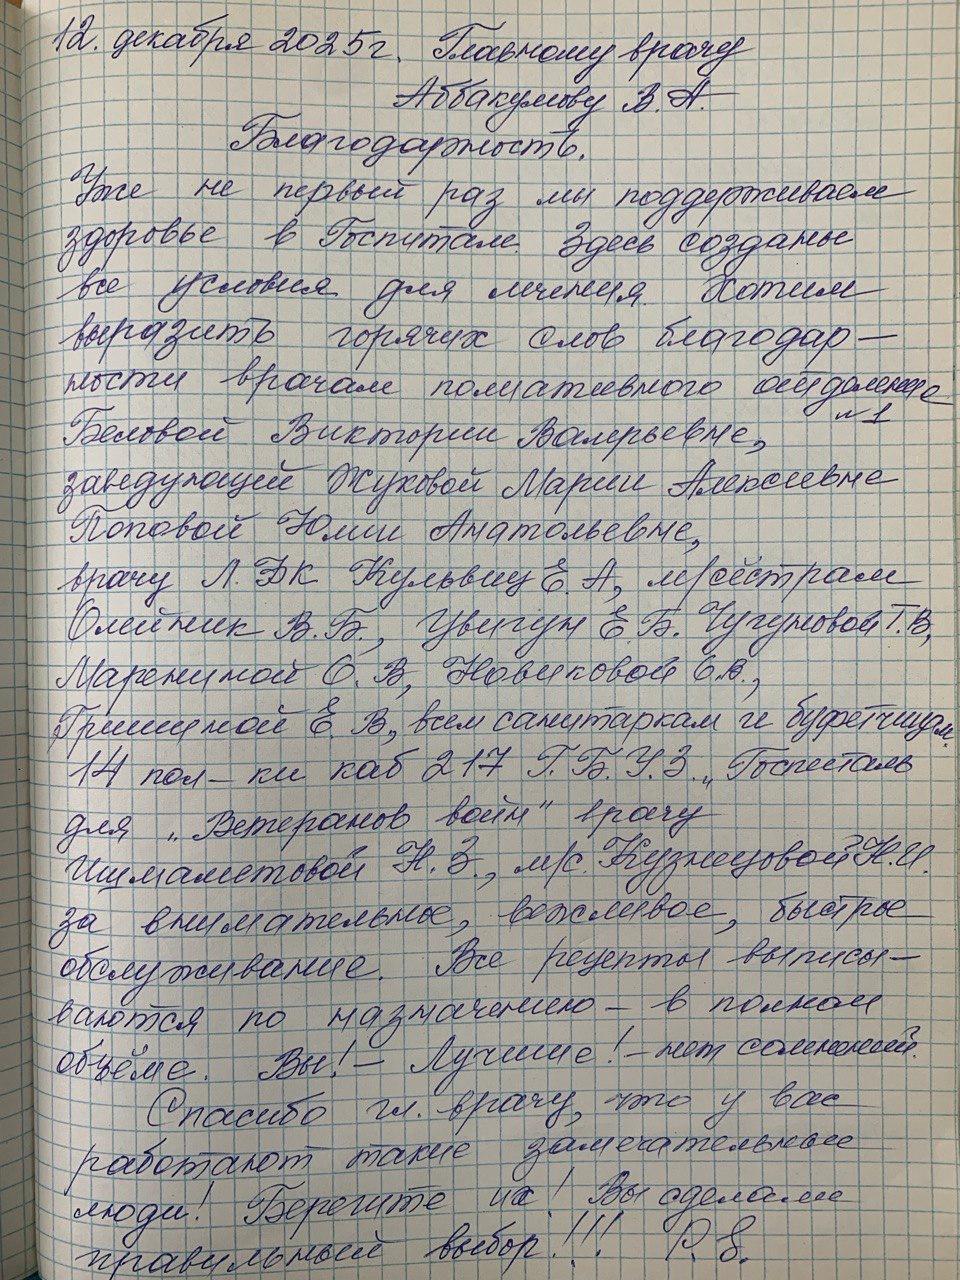 12. декабря 2025г. Главному врачу
Аббакумову В. А.
Благодарность.
Уже не первый раз мы поддерживаем
здоровье в Госпитале. Здесь созданы
все условия для лечения. Хотим
выразить горячих слов благодар-
ности врачам полиативного отделение
№1
Беловой Виктории Валерьевне,
заведующей Жуковой Марии Алексеевне
Поповой Юлии Анатольевне,
врачу Л.ФК Кульвиц Е. А, м/сёстрам
Олейник В.Б., Цвигун Е.Б. Чугуновой Т.В,
Марениной О. В, Новиковой Е.В.,
Гришиной Е. В, всем санитаркам и буфетчицам.
14 пол-ки каб 217 Г.Б.У.З. „Госпиталь
для „Ветеранов войн" врачу
Ишмаметовой Н. З., м/с. Кузнецовой Н.И.
за внимательное, вежливое, быстрое
обслуживание. Все рецепты выписы-
ваются по назначению - в полном
объёме. Вы! - Лучшие! - нет сомнений.
Спасибо гл. врачу, что у вас
работают такие замечательные
люди! Берегите их! Вы сделали
правильный выбор!!! Р.